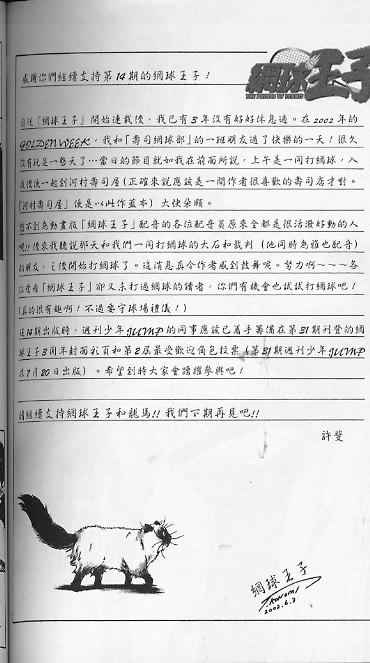 網球王子
THE PRINCE OF TENNIS
感謝你們繼續支持第14期的網球王子!
自從「網球王子」開始連載後,我已有3年沒有好好休息過。在2002年的
GOLDEN WEEK,我和「壽司網球部」的一班朋友過了快樂的一天!很久
沒有玩足一整天了…當日的節目就如我在前面所說,上午是一同打網球,入
夜後便一起到河村壽司屋(正確來說應該是一間作者很喜歡的壽司店才對。
「河村壽司屋」便是以此作藍本)大快朵頤。
想不到為動畫版「網球王子」配音的各位配音員原來全都是很活潑好動的人
呢!!後來我聽說那天和我們一同打網球的大石和裁判(他同時為雅也配音)
的朋友,之後開始打網球了。這消息真令作者感到鼓舞呢。努力啊~~~各
位愛看「網球王子」卻又未打過網球的讀者,你們有機會也試試打網球吧!
(真的很有趣啊!不過要守球場禮儀!)
這14期出版時,週刊少年JUMP的同事應該已着手籌備在第31期刊登的網
球王子3周年封面彩頁和第2屆最受歡迎角色投票(第31期週刊少年JUMP
在7月20日出版)。希望到時大家會踴躍參與吧!
請繼續支持網球王子和龍馬!!我們下期再見吧!!
許斐
網球王子
2002.6.3